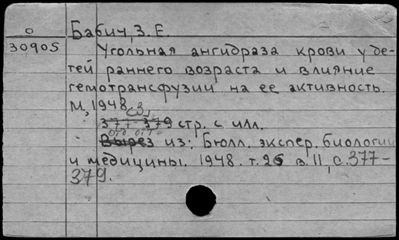 О
30905
Бабич, З. Е.
Угольная ангидраза крови у де-
тей раннего возраста и влияние
гемотрансфузии на ее активность.
М, 1948.
[3]
377-379 стр. с илл.
Вырез из: Бюлл. экспер. биологии
и медицины. 1948. т. 26 в. 11, с. 377-
379.